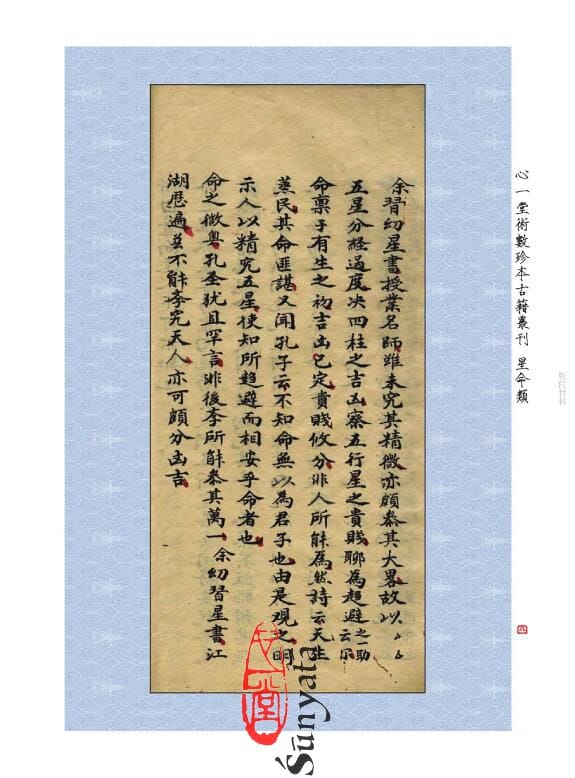 心一堂術數珍本古籍叢刊 星命類
版权材料
四
余習幻星書授業名師雖未究其精微亦頗叅其大畧故以ㄑㄑ
五星分經過度决四柱之吉凶察五行星之貴賤聊為趨避之一助云尔
命禀于有生之初吉凶已定貴賤攸分非人所能為然詩云天生
蒸民其命匪諶又聞孔子云不知命無以為君子也由是观之明
示人以精究五星使知所趨避而相安乎命者也
命之微奥孔圣犹且罕言非後李所能叅其萬一余幻習星書江
湖歷遍岂不能李究天人亦可頗分凶吉
心一堂
Śūnyata